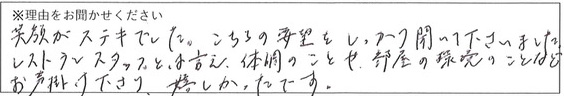 ※理由をお聞かせください
笑顔がステキでした。こちらの要望をしっかり聞いて下さいました。
レストランスタッフとは言え、体調のことや、部屋の環境のことなど
お声掛け下さり、嬉しかったです。